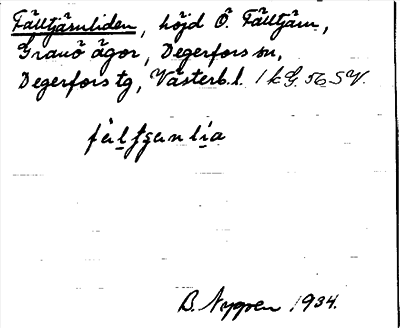 Fälltjärnliden, höjd Ö. Fälltjärn,
Granö ägor, Degerfors sn,
Degerfors tg, Västerb.l. 1 k G. 56 SV.
B. Nygren 1934.